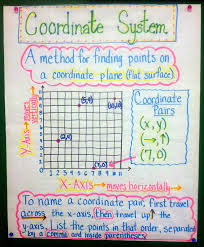 Coordinate System
A method for finding points on
a coordinate plane (flat surface)
Y-Axis → moves vertically
Coordinate
Pairs
(x, y)
(→, ↑)
(7, 0)
X-Axis → moves horizontally
To name a coordinate pair, first travel
across the x-axis, then travel up the
y-axis. List the points in that order, separated
by a comma and inside parentheses.